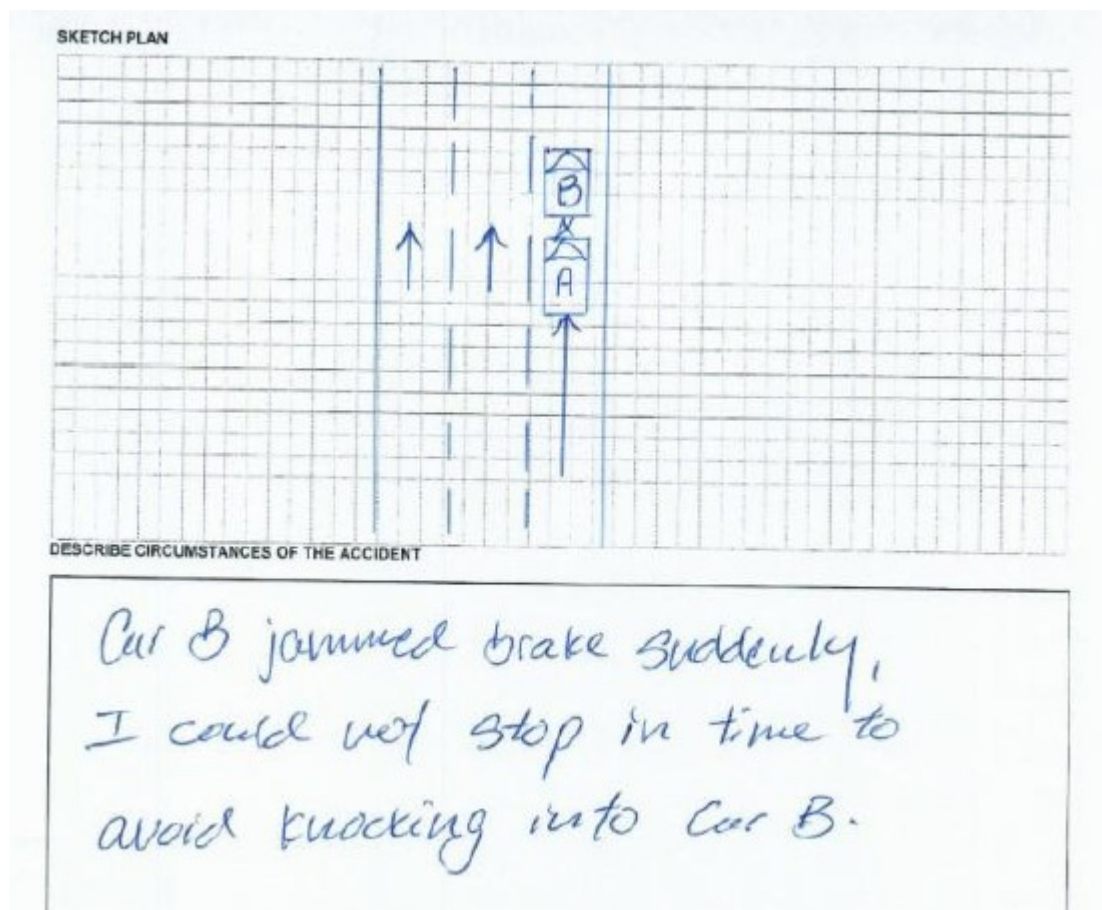 SKETCH PLAN
B
A
DESCRIBE CIRCUMSTANCES OF THE ACCIDENT
Car B jammed brake suddenly,
I could not stop in time to
avoid knocking into Car B.